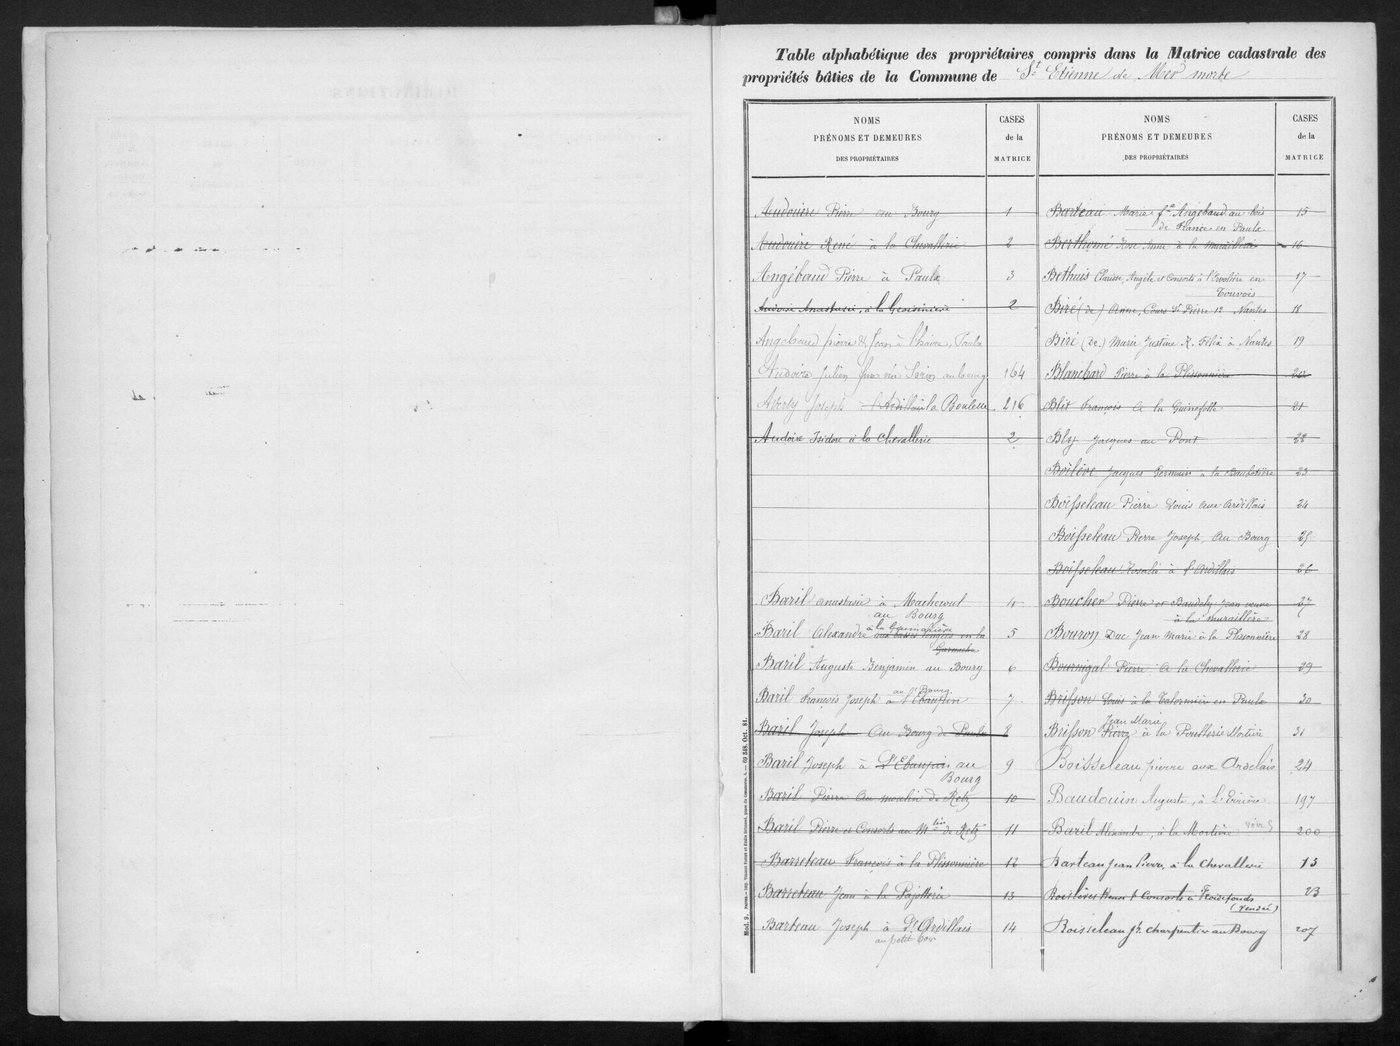 Table alphabétique des propriétaires compris dans la Matrice cadastrale des
propriétés bâties de la Commune de St Etienne de Mer morte
NOMS
PRÉNOMS ET DEMEURES
DES PROPRIÉTAIRES
CASES
de la
MATRICE
Audouire Pierre au Bourg 1
Audouire René à la Chevallerie 2
Angébaud Pierre à Paulx 3
Audoire Anastasie, à la 2
Angebaud pierre & Jean à Paulx
Audoire Julien née Sorin au bourg 164
Joseph la Boulelle 216
Audoire Isidore à la Chevallerie 2
Baril anastasie à Machecoul 4
au Bourg
à la
Baril Alexandre aux basses en la 5
Garnache
Baril Auguste Benjamin au Bourg 6
au Bourg
Baril Francois Joseph à l'Ebaupin 7
Baril Joseph Au Bourg de Paulx 8
Baril Joseph à L'Ebaupin au 9
Bourg
Baril Pierre au moulin de Retz 10
Baril Pierre et Consorts au Mlin de Retz 11
Barreteau François à la Plissonnière 12
Barreteau Jean à la 13
Barteau Joseph à L'Ordillais 14
au petit
Mod. 9.
NOMS
PRÉNOMS ET DEMEURES
DES PROPRIÉTAIRES
CASES
de la
MATRICE
Barteau Marie fe Angebaud au bois 15
de France en Paulx
Berthumé Rose Anne à la muraillère 16
Bethuis Clarisse, Angèle et Consorts à l' en 17
Touvois
Biré (de) Anne, Cours St Pierre 12 Nantes 18
Biré (de) Marie Justine R. Félix à Nantes 19
Blanchard Pierre à la Plissonnière 20
François à la 21
Bly Jacques au Pont 22
Boiléve Jacques Germain à la 23
Boisseleau Pierre Louis aux ardillais 24
Boisseleau Pierre Joseph au Bourg 25
Boisseleau Rosalie à l'Ordillais 26
Boucher Pierre et Jean veuve 27
à la muraillère
Bouron Duc Jean Marie à la Plissonnière 28
Bournigal Pierre à la Chevallerie 29
Brisson Louis à la en Paulx 30
Jean Marie
Brisson Pierre à la 31
Boisseleau pierre aux Ardelais 24
Baudouin Auguste, à 197
Baril Alexandre, à la Mortière voir 5 200
Barteau Jean Pierre, à la Chevallerie 15
Consorts à Froidefonds 23
(Vendée)
Boisseleau charpentier au Bourg 207